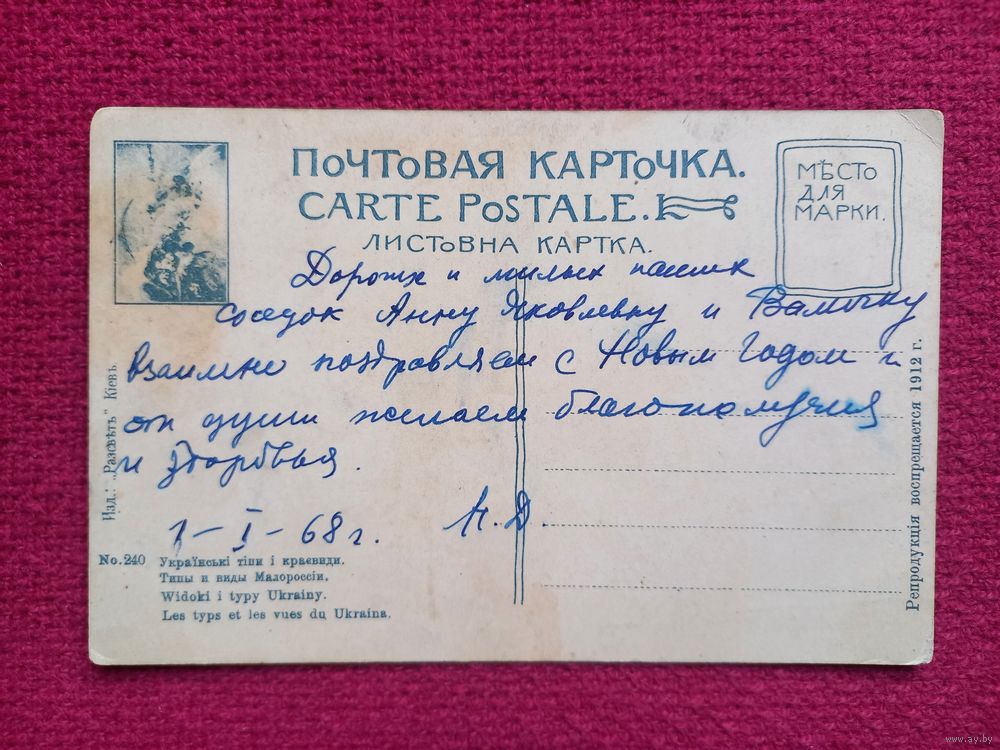 ПОЧТОВАЯ КАРТОЧКА.
CARTE POSTALE.
ЛИСТОВНА КАРТКА.
МѢСТО
ДЛЯ
МАРКИ.
Дорогих и милых наших
соседок Анну Яковлевну и Валичку
взаимно поздравляем с Новым Годом и
от души желаем благополучия
и здоровья.
1-I-68 г. Н.Д.
Изд.: „Разсвѣтъ" Кіевъ
No. 240 Українські тіпи і краєвиди.
Типы и виды Малороссіи.
Widoki i typy Ukrainy.
Les typs et les vues du Ukraina.
Репродукція воспрещается 1912 г.
www.ay.by